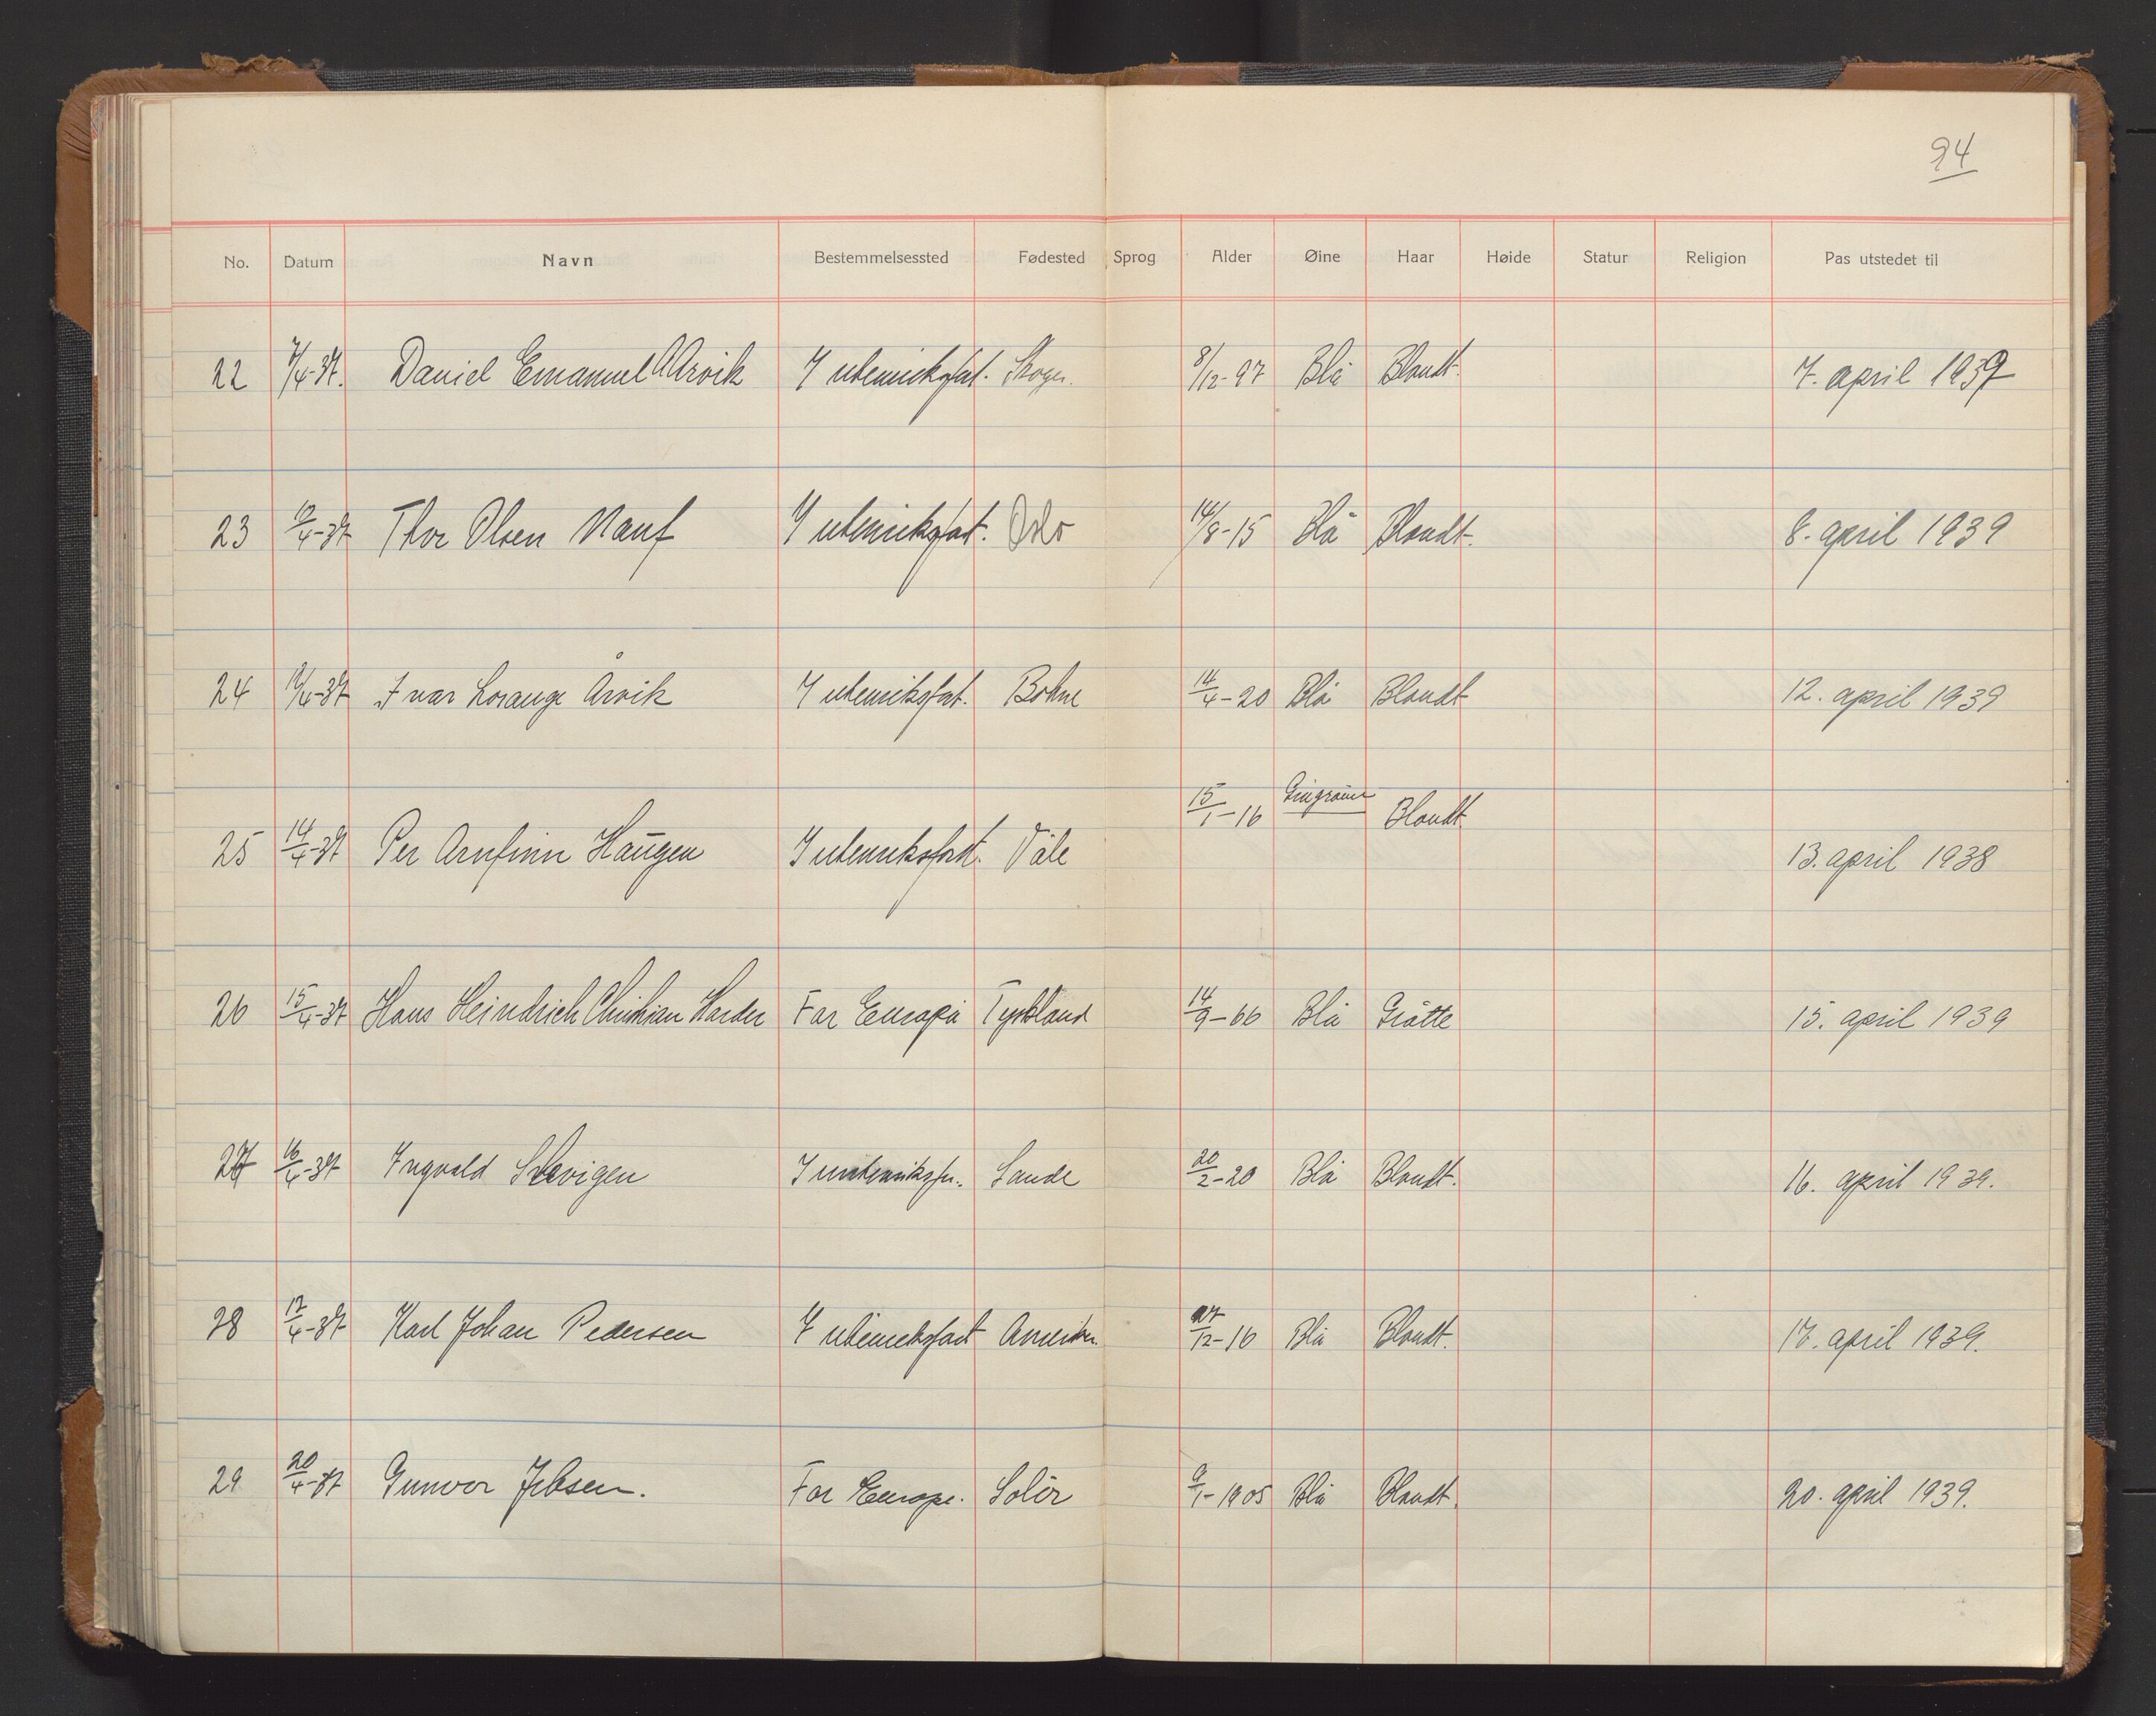 94
No. Datum Navn Bestemmelsessted Fødested Sprog Alder Øine Haar Høide Statur Religion Pas utstedet til
22 7/4-37. Daniel Emanuel Arvik I utenriksfat. Skoger. 8/12-97 Blå Blondt. 7. april 1939
23 10/4-37 Thor Olsen Nauf I utenriksfat. Oslo 14/8-15 Blå Blondt. 8. april 1939
24 12/4-37 Ivar Lorange Årvik I utenriksfat. Botne 14/4-20 Blå Blondt 12. april 1939
25 14/4-37 Per Arnfinn Haugen I utenriksfart. Våle 15/1-16 Blondt. 13. april 1938
26 15/4-37 Hans Heindrich Christian Harder For Europa Tyskland 14/9-66 Blå Gråtte 15. april 1939
27 16/4-37 Ingvald Selvigen I utenriksfa. Sande 20/2-20 Blå Blondt. 16. april 1939.
28 17/4-37 Karl Johan Pedersen I utenriksfart Amerika. 27/12-16 Blå Blondt. 17. april 1939.
29 20/4-37 Gunvor Jebsen. For Europa. Solör 9/1-1905 Blå Blondt. 20. april 1939.